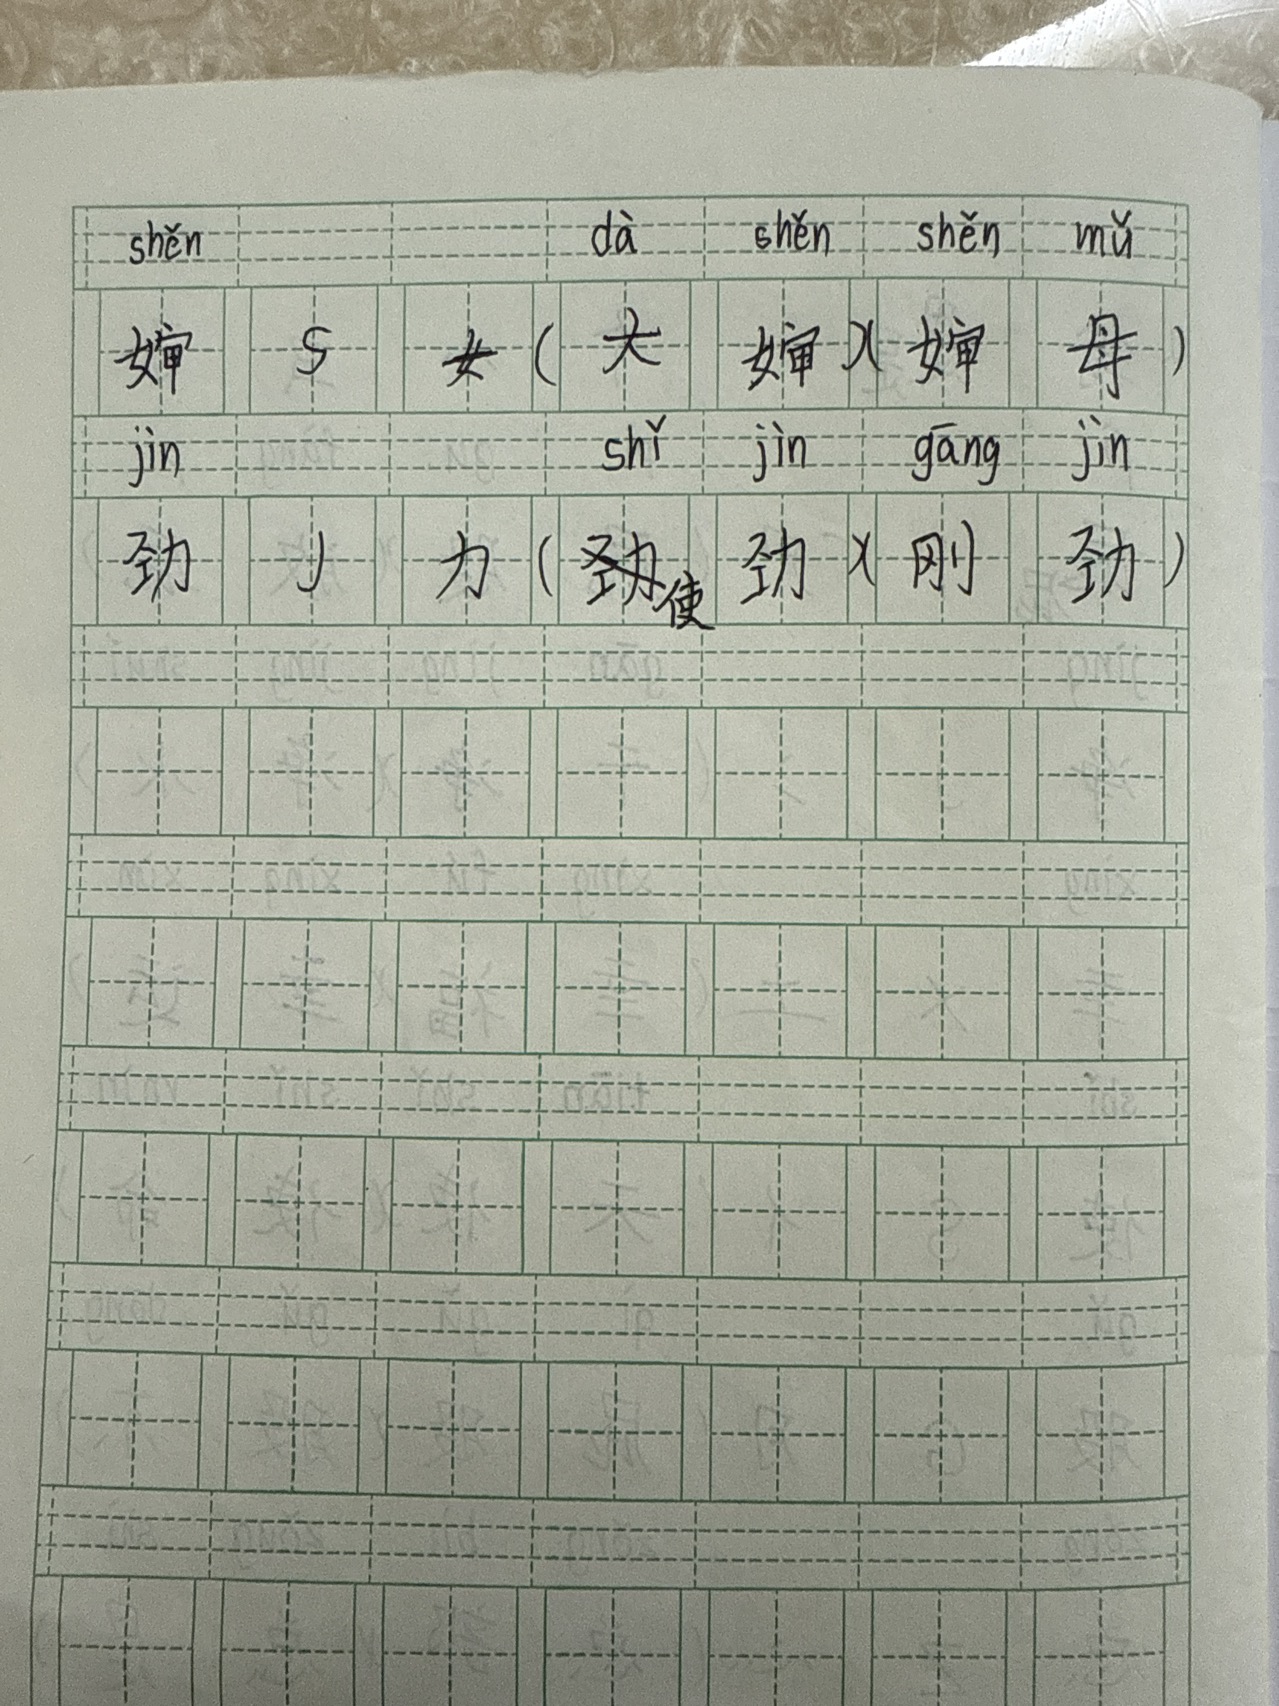 shěn dà shěn shěn mǔ
婶 S 女 ( 大 婶 )( 婶 母 )
jìn shǐ jìn gāng jìn
劲 J 力 ( 劲 使 劲 )( 刚 劲 )